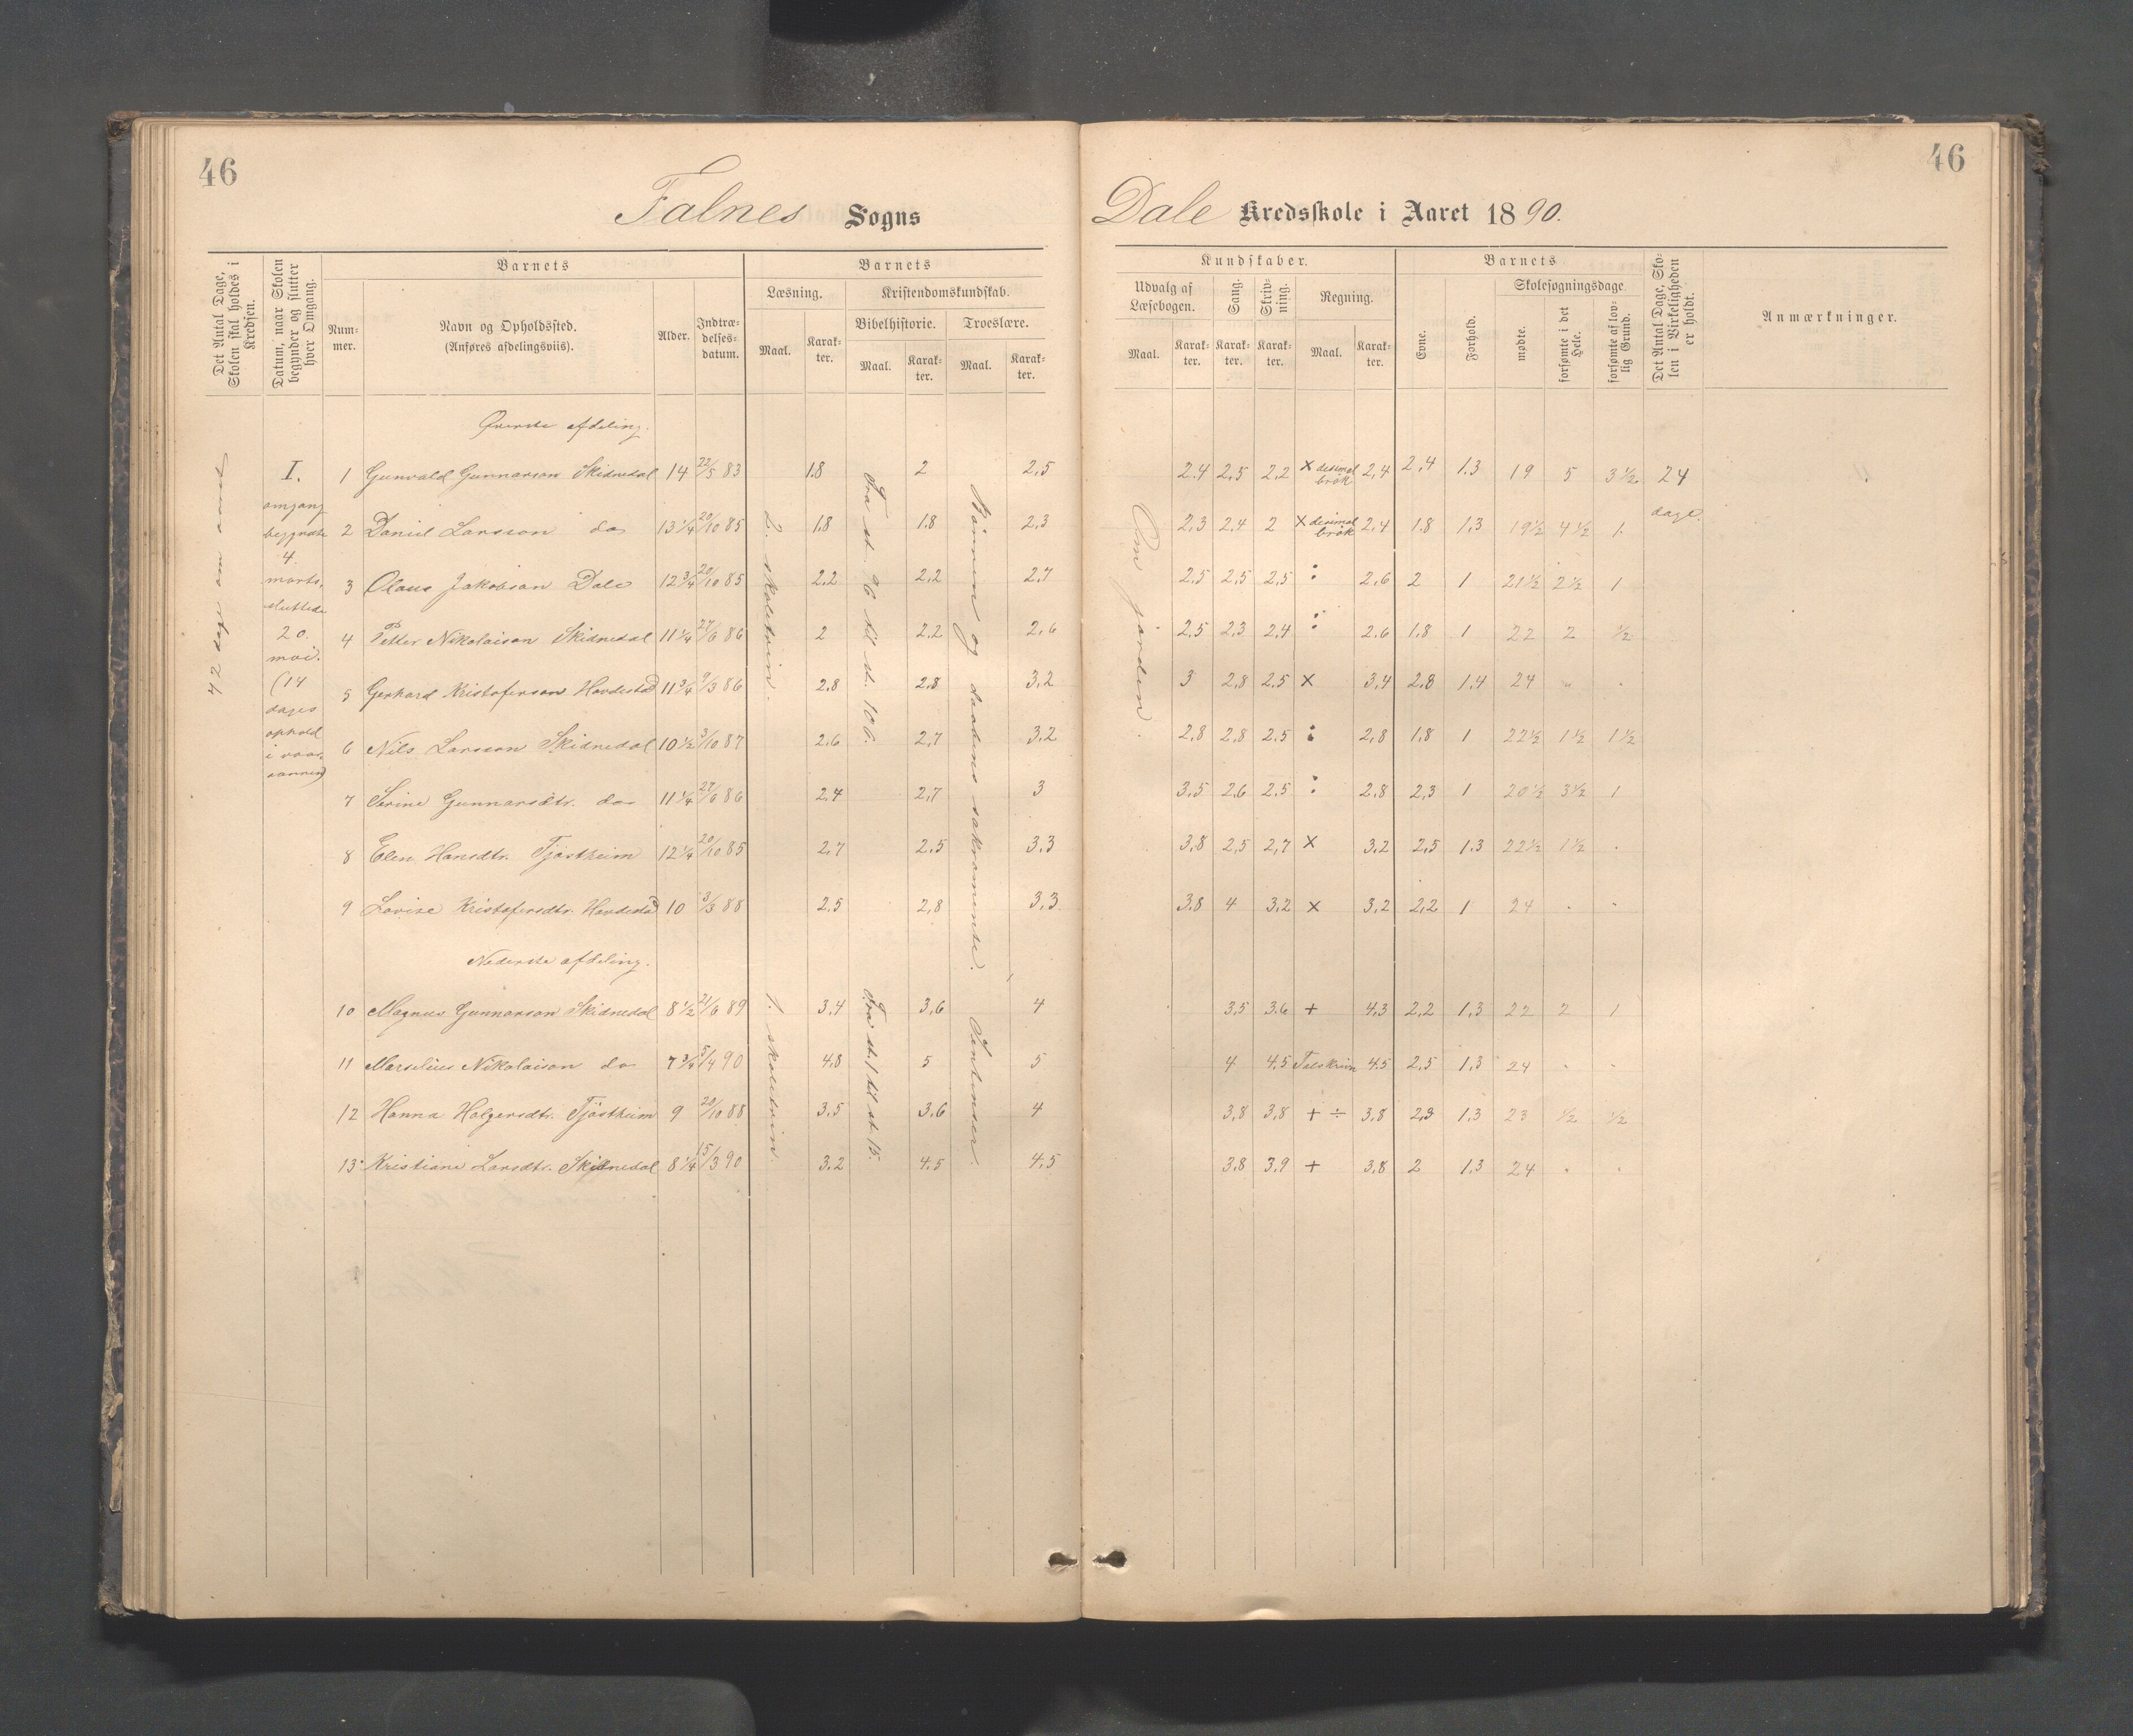 46
46
Falnes Sogns
Dale Kredsskole i Aaret 1890.
Det Antal Dage, Skolen skal holdes i Kredsen.
Datum, naar Skolen begynder og slutter hver Omgang.
Barnets
Nummer.
Navn og Opholdssted.
(Anføres afdelingsviis).
Alder.
Indtrædelsesdatum.
Barnets
Læsning.
Maal.
Karakter.
Kristendomskundskab.
Bibelhistorie.
Maal.
Karakter.
Troeslære.
Maal.
Karakter.
Kundskaber.
Udvalg af Læsebogen.
Maal.
Karakter.
Sang.
Karakter.
Skrivning.
Karakter.
Regning.
Maal.
Karakter.
Barnets
Evne.
Forhold.
Skolesøgningsdage
mødte.
forsømte i det Hele.
forsømte af lovlig Grund.
Det Antal Dage, Skolen i Virkeligheden er holdt.
Anmærkninger.
42 dage om aaret
I.
omgang
begyndte
4.
marts,
sluttede
20.
mai.
(14
dages
ophold
i vaar-
aannen)
2. skoletrin.
Fra st. 96 til st. 106.
Bønnen og daabens sakramente.
Om jorden.
Øverste afdeling.
1 Gunvald Gunnarson Skidnedal 14 22/5 83 1.8 2 2,5 2.4 2,5 2,2 × desimal brøk 2,4 2,4 1.3 19 5 3½ 24 dage.
2 Daniel Larsson do 13¼ 20/10 85 1.8 1.8 2,3 2,3 2,4 2 × desimal brøk 2,4 1.8 1,3 19½ 4½ 1.
3 Olaus Jakobson Dale 12¾ 20/10 85 2,2 2,2 2,7 2,5 2,5 2,5 : 2,6 2 1 21½ 2½ 1
4 Petter Nikolaison Skidnedal 11¼ 27/6 86 2 2,2 2,6 2,5 2,3 2,4 : 2.6 1.8 1 22 2 ½
5 Gerhard Kristoferson Havdestad 11¾ 9/3 86 2,8 2,8 3,2 3 2,8 2.5 × 3,4 2.8 1.4 24 " .
6 Nils Larsson Skidnedal 10½ 3/10 87 2,6 2,7 3,2 2,8 2,8 2.5 : 2,8 1.8 1 22½ 1½ 1½
7 Serine Gunnarsdtr. do 11¼ 27/6 86 2,4 2,7 3 3.5 2,6 2.5 : 2.8 2,3 1 20½ 3½ 1
8 Elen Hansdtr. Tjøstheim 12¼ 20/10 85 2,7 2.5 3.3 3,8 2,5 2,7 × 3.2 2,5 1.3 22½ 1½ .
9 Lovise Kristofersdtr. Havdestad 10 3/3 88 2,5 2,8 3,3 3.8 4 3,2 × 3,2 2,2 1 24 . .
Nederste afdeling.
1. skoletrin
Fra st. 1 til st. 15.
Sentenser.
10 Magnus Gunnarson Skidnedal 8½ 21/6 89 3,4 3,6 4 3,5 3.6 + 4,3 2,2 1,3 22 2 1
11 Marselius Nikolaison do 7¾ 5/4 90 4,8 5 5 4 4.5 Talskriv 4.5 2,5 1,3 24 . .
12 Hanna Holgersdtr. Tjøstheim 9 20/10 88 3,5 3,6 4 3,8 3,8 + ÷ 3,8 2,3 1.3 23 ½ ½
13 Kristiane Larsdtr. Skidnedal 8¼ 15/3 90 3,2 4.5 4,5 3,8 3,9 + 3,8 2 1.3 24 . .